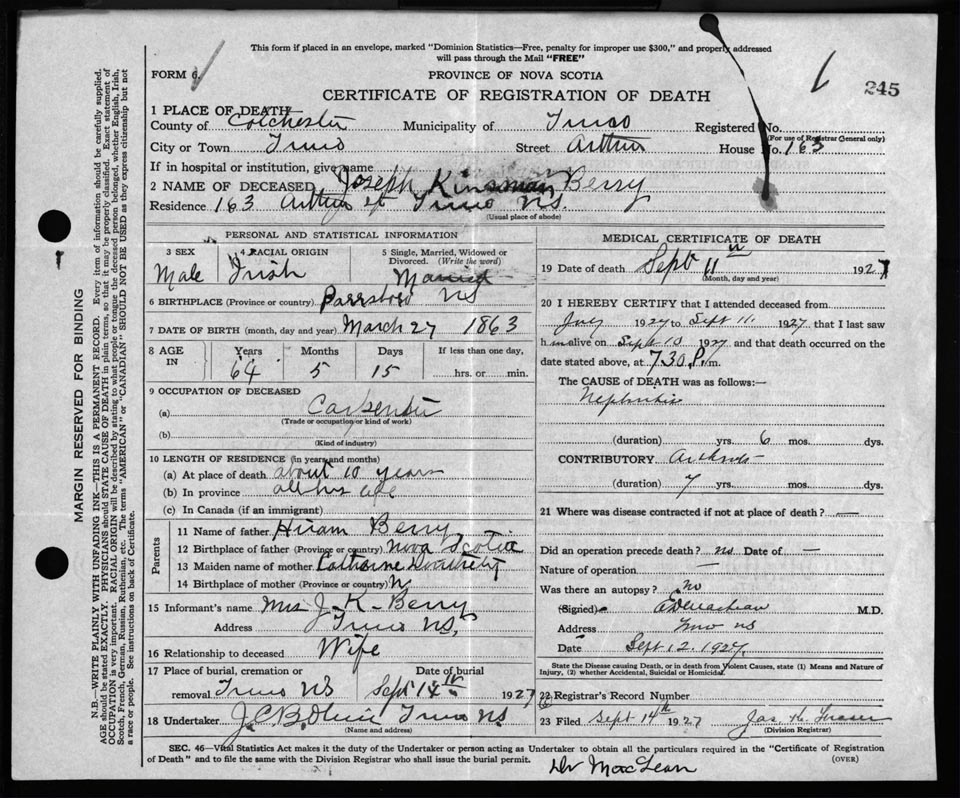 This form if placed in an envelope, marked "Dominion Statistics—Free, penalty for improper use $300," and properly addressed
will pass through the Mail "FREE"
FORM 6
PROVINCE OF NOVA SCOTIA
245
CERTIFICATE OF REGISTRATION OF DEATH
1 PLACE OF DEATH
County of Colchester Municipality of Truro Registered No.
(For use of Registrar General only)
City or Town Truro Street Arthur House No. 163
If in hospital or institution, give name
2 NAME OF DECEASED Joseph Kinsman Berry
Residence 163 Arthur st Truro NS.
(Usual place of abode)
PERSONAL AND STATISTICAL INFORMATION
3 SEX Male
4 RACIAL ORIGIN Irish
5 Single, Married, Widowed or Divorced. (Write the word) Married
6 BIRTHPLACE (Province or country) Parrsboro NS
7 DATE OF BIRTH (month, day and year) March 27 1863
8 AGE IN Years 64 Months 5 Days 15 If less than one day, hrs. or min.
9 OCCUPATION OF DECEASED
(a) Carpenter
(Trade or occupation or kind of work)
(b)
(Kind of industry)
10 LENGTH OF RESIDENCE (in years and months)
(a) At place of death about 10 years
(b) In province all his life
(c) In Canada (if an immigrant)
Parents
11 Name of father Hiram Berry
12 Birthplace of father (Province or country) Nova Scotia
13 Maiden name of mother Catharine
14 Birthplace of mother (Province or country)
15 Informant's name Mrs J-K-Berry
Address Truro NS,
16 Relationship to deceased Wife
17 Place of burial, cremation or removal Truro NS
Date of burial Sept 14th 1927
18 Undertaker Truro NS
(Name and address)
MEDICAL CERTIFICATE OF DEATH
19 Date of death Sept 11 1927
(Month, day and year)
20 I HEREBY CERTIFY that I attended deceased from
1927 to Sept 11. 1927 that I last saw
him alive on Sept 10 1927 and that death occurred on the
date stated above, at 7.30 P.m.
The CAUSE of DEATH was as follows:—
Nephritis
(duration) yrs. 6 mos. dys.
CONTRIBUTORY
(duration) 7 yrs. mos. dys.
21 Where was disease contracted if not at place of death? —
Did an operation precede death? no Date of —
Nature of operation —
Was there an autopsy? no
(Signed) M.D.
Address Truro NS
Date Sept 12. 1927.
State the Disease causing Death, or in death from Violent Causes, state (1) Means and Nature of
Injury, (2) whether Accidental, Suicidal or Homicidal.
22 Registrar's Record Number
23 Filed Sept 14th 1927 Jas. K. Fraser
(Division Registrar)
SEC. 46—Vital Statistics Act makes it the duty of the Undertaker or person acting as Undertaker to obtain all the particulars required in the "Certificate of Registration
of Death" and to file the same with the Division Registrar who shall issue the burial permit.
(OVER)
Dr MacLean
MARGIN RESERVED FOR BINDING
N.B.—WRITE PLAINLY WITH UNFADING INK—THIS IS A PERMANENT RECORD. Every item of information should be carefully supplied.
AGE should be stated EXACTLY. PHYSICIANS should STATE CAUSE OF DEATH in plain terms, so that it may be properly classified. Exact statement of
OCCUPATION is very important. RACIAL ORIGIN will be described by stating to what people or tongue the deceased person belonged, whether English, Irish,
Scotch, French, German, Russian, Ruthenian, etc. The terms "AMERICAN" or "CANADIAN" SHOULD NOT BE USED as they express citizenship but not
a race or people. See instructions on back of Certificate.